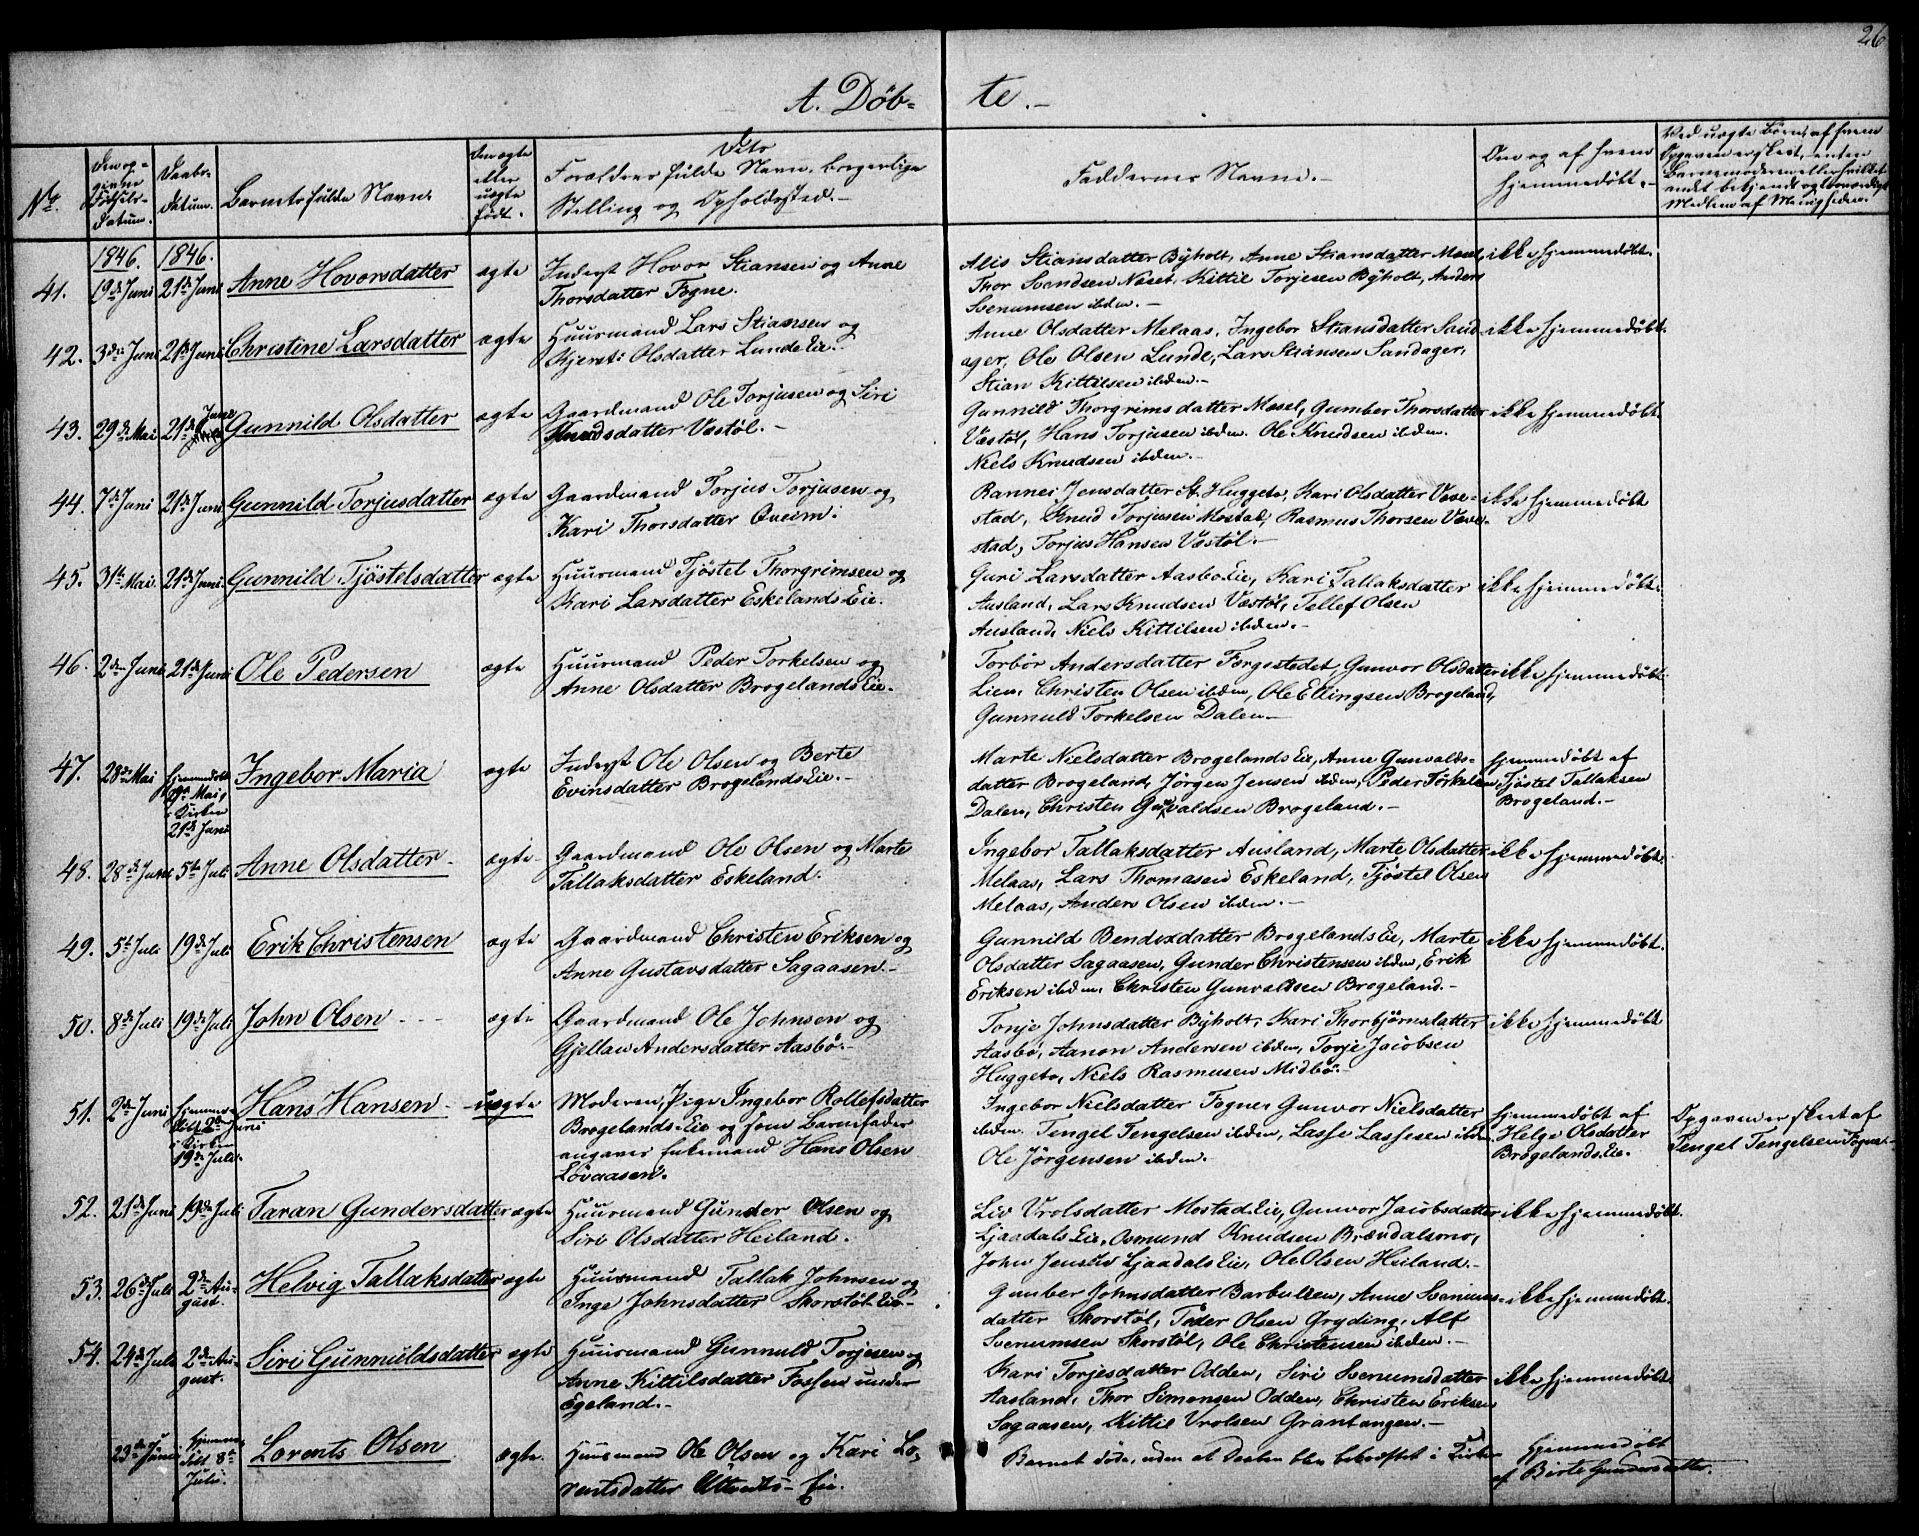 26
A. Døb-te.-
No. | Den op-givne Fødsels-datum. | Daabs-datum. | Barnets fulde Navn. | Om ægte eller uægte født. | Forældres fulde Navn, borgerlige Stilling og Opholdssted.- | Faddernes Navne.- | Om og af hvem hjemmedøbt.- | Ved uægte Børn, af hvem Opgaven er skeet, enten Barnemoderen eller hvilket andet bekjendt og troværdigt Medlem af Menigheden.
1846. 1846.
41. 19de Juni 21de Juni Anne Hovorsdatter ægte
Inderst Hovor Stiansen og Anne
Thorsdatter Fogne.
Alis Stiansdatter Byholt, Anne Stiansdatter Mosel,
Thor Svendsen Næset, Kittil Torjesen Byholt, Anders
Svenumsen ibdm.-
ikke hjemmedøbt.
42. 3die Juni 21de Juni Christine Larsdatter ægte
Huusmand Lars Stiansen og
Bjereti Olsdatter Lunde Eie.-
Anne Olsdatter Melaas, Ingebor Stiansdatter Sand-
ager, Ole Olsen Lunde, Lars Stiansen Sandager,
Stian Kittilsen ibdm.-
ikke hjemmedøbt.
43. 29de Mai 21de Juni Gunnild Olsdatter ægte
Gaardmand Ole Torjusen og Siri
Knudsdatter Vastøl.-
Gunnild Thorgrimsdatter Mosel, Gumber Thorsdatter
Vastøl, Hans Torjusen ibdm. Ole Knudsen ibdm.
Niels Knudsen ibdm.-
ikke hjemmedøbt.
44. 7de Juni 21de Juni Gunnild Torjusdatter ægte
Gaardmand Torjus Torjusen og
Kari Thorsdatter Qveim.
Rannei Jensdatter St. Huggeto, Kari Olsdatter Væve-
stad, Knud Torjusen Mostad, Rasmus Thorsen Væve-
stad, Torjus Hansen Vastøl.-
ikke hjemmedøbt
45. 31te Mai. 21de Juni. Gunnild Tjöstelsdatter ægte
Huusmand Tjöstel Thorgrimsen og
Kari Larsdatter Eskelands Eie.
Guri Larsdatter Aasbo Eie, Kari Tallaksdatter
Ausland, Lars Knudsen Vastøl, Tellef Olsen
Ausland, Niels Kittilsen ibdm.-
ikke hjemmedøbt.
46. 2den Juni 21de Juni Ole Pedersen ægte
Huusmand Peder Torkelsen og
Anne Olsdatter Brogelands Eie.
Torbör Andersdatter Færgestedet, Gunvor Olsdatter
Lien, Christen Olsen ibdm, Ole Ellingsen Brogeland,
Gunnuld Torkelsen Dalen-
ikke hjemmedøbt.
47. 28de Mai hjemmedøbt Mai, i Kirken 21de Juni Ingebor Maria ægte
Inderst Ole Olsen og Berte
Evinsdatter Brogelands Eie.-
Marte Nielsdatter Brogelands Eie, Anne Gunvalds-
datter Brogeland, Jörgen Jensen ibdm, Peder Torkelsen
Dalen, Christen Gunvaldsen Brogeland.-
hjemmedøbt af
Tjöstel Tallaksen
Brogeland.-
48. 28de Juni 5te Juli Anne Olsdatter ægte
Gaardmand Ole Olsen og Marte
Tallaksdatter Eskeland.
Ingebor Tallaksdatter Ausland, Marte Olsdatter
Melaas, Lars Thomasen Eskeland, Tjöstel Olsen
Melaas, Anders Olsen ibdm.-
ikke hjemmedøbt.
49. 5te Juli 19de Juli Erik Christensen ægte
Gaardmand Christen Eriksen og
Anne Gustavsdatter Sagaasen.-
Gunnild Bendixdatter Brogelands Eie, Marte
Olsdatter Sagaasen, Gunder Christensen ibdm, Erik
Eriksen ibdm, Christen Gunvaldsen Brogeland.-
ikke hjemmedøbt.
50. 8de Juli 19de Juli John Olsen ægte
Gaardmand Ole Johnsen og
Gjellau Andersdatter Aasbö.-
Tonje Johnsdatter Byholt, Kari Thorbjörnsdatter
Aasbö, Aanon Andersen ibdm, Torje Jacobsen
Huggeto, Niels Rasmusen Midbö.-
ikke hjemmedøbt
51. 2den Juni hjemme-døbt 2den Juni i Kirken 19de Juli. Hans Hansen uægte
Moderen, Pige Ingebor Rollefsdatter
Brogelands Eie og som Barnefader
angaves Enkemand Hans Olsen
Lövaasen.
Ingebor Nielsdatter Fogne, Gunvor Nielsdatter
ibdm. Tengel Tengelsen ibdm, Lasse Lassesen ibdm,
Ole Jörgensen ibdm.
hjemmedøbt af
Helge Olsdatter
Brogelands Eie.
Opgaven er skeet af
Tengel Tengelsen Fogne.-
52. 21de Juni 19de Juli Taran Gundersdatter ægte
Huusmand Gunder Olsen og
Siri Olsdatter Heiland.
Liv Vrolsdatter Mostad Eie, Gunvor Jacobsdatter
Ljaadals Eie, Osmund Knudsen Brændalsmo,
John Jensen Ljaadals Eie, Ole Olsen Heiland.-
ikke hjemmedøbt.
53. 26de Juli 2den Au-gust. Helvig Tallaksdatter ægte
Huusmand Tallak Johnsen og
Inge Johnsdatter Skorstøl Eie-
Gumber Johnsdatter Barbulien, Anne Svenums-
datter Skorstøl, Peder Olsen Gryding, Alf
Svenumsen Skorstøl, Ole Christensen ibdm.-
ikke hjemmedøbt.
54. 24de Juli 2den Au-gust. Siri Gunnuldsdatter ægte
Huusmand Gunnuld Torjesen og
Anne Kittilsdatter Fossen under
Egeland.-
Kari Torjesdatter Odden, Siri Svenumsdatter
Aasland, Thor Simonsen Odden, Christen Eriksen
Sagaasen, Kittil Vrolsen Grantangen.-
ikke hjemmedøbt.
23de Juni hjemme-døbt 8de Juli. Lorents Olsen ægte.
Huusmand Ole Olsen og Kari Lo-
rentsdatter Eie.
Barnet døde, uden at Daaben blev bekræftet i Kirken
Hjemmedøbt
af Birte Gundersdatter.